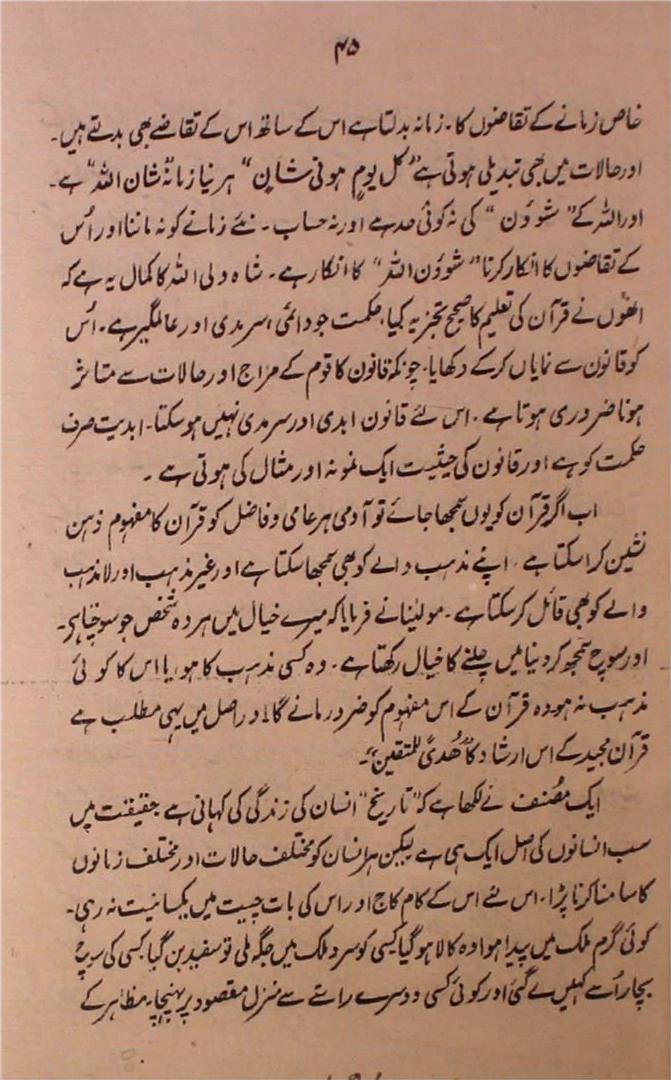 ۴۵
خاص زمانے کے تقاضوں کا۔ زمانہ بدلتا ہے اس کے ساتھ اس کے تقاضے بھی بدلتے ہیں۔
اور حالات میں بھی تبدیلی ہوتی ہے "کل یومٍ ھو فی شاپن" ہر نیا زمانہ شان اللہ" ہے۔
اور اللہ کے "شوؤن" کی نہ کوئی حد ہے اور نہ حساب۔ نئے زمانے کو نہ ماننا اور اُس
کے تقاضوں کا انکار کرنا "شوؤن اللہ" کا انکار ہے۔ شاہ ولی اللہ کا کمال یہ ہے کہ
انھوں نے قرآن کی تعلیم کا صحیح تجزیہ کیا، حکمت جو دائمی، سرمدی اور عالمگیر ہے۔ اُس
کو قانون سے نمایاں کر کے دکھایا، چونکہ قانون کا قوم کے مزاج اور حالات سے متاثر
ہونا ضروری ہوتا ہے۔ اس لئے قانون ابدی اور سرمدی نہیں ہو سکتا۔ ابدیت صرف
حکمت کو ہے اور قانون کی حیثیت ایک نمونہ اور مثال کی ہوتی ہے۔
اب اگر قرآن کو یوں سمجھا جائے تو آدمی ہر عامی و فاضل کو قرآن کا مفہوم ذہن
نشین کرا سکتا ہے، اپنے مذہب والے کو بھی سمجھا سکتا ہے اور غیر مذہب اور لا مذہب
والے کو بھی قائل کر سکتا ہے۔ مولینا نے فرمایا کہ میرے خیال میں ہر وہ شخص جو سوچتا ہے۔
اور سوچ سمجھ کر دنیا میں چلنے کا خیال رکھتا ہے۔ وہ کسی مذہب کا ہو، یا اس کا کوئی
مذہب نہ ہو وہ قرآن کے اس مفہوم کو ضرور مانے گا! در اصل میں یہی مطلب ہے
قرآن مجید کے اس ارشاد کا "ھُدیً للمتقین"۔
ایک مصنف نے لکھا ہے کہ "تاریخ" انسان کی زندگی کی کہانی ہے حقیقت میں
سب انسانوں کی اصل ایک ہی ہے لیکن ہر انسان کو مختلف حالات اور مختلف زمانوں
کا سامنا کرنا پڑا۔ اس لئے اس کے کام کاج اور اس کی بات چیت میں یکسانیت نہ رہی۔
کوئی گرم ملک میں پیدا ہوا وہ کالا ہو گیا کسی کو سرد ملک میں جگہ ملی تو سفید بن گیا کسی کی سوچ
بچار اُسے کہیں لے گئی اور کوئی کسی دوسرے راستے سے منزل مقصود پر پہنچا۔ مظاہر کے